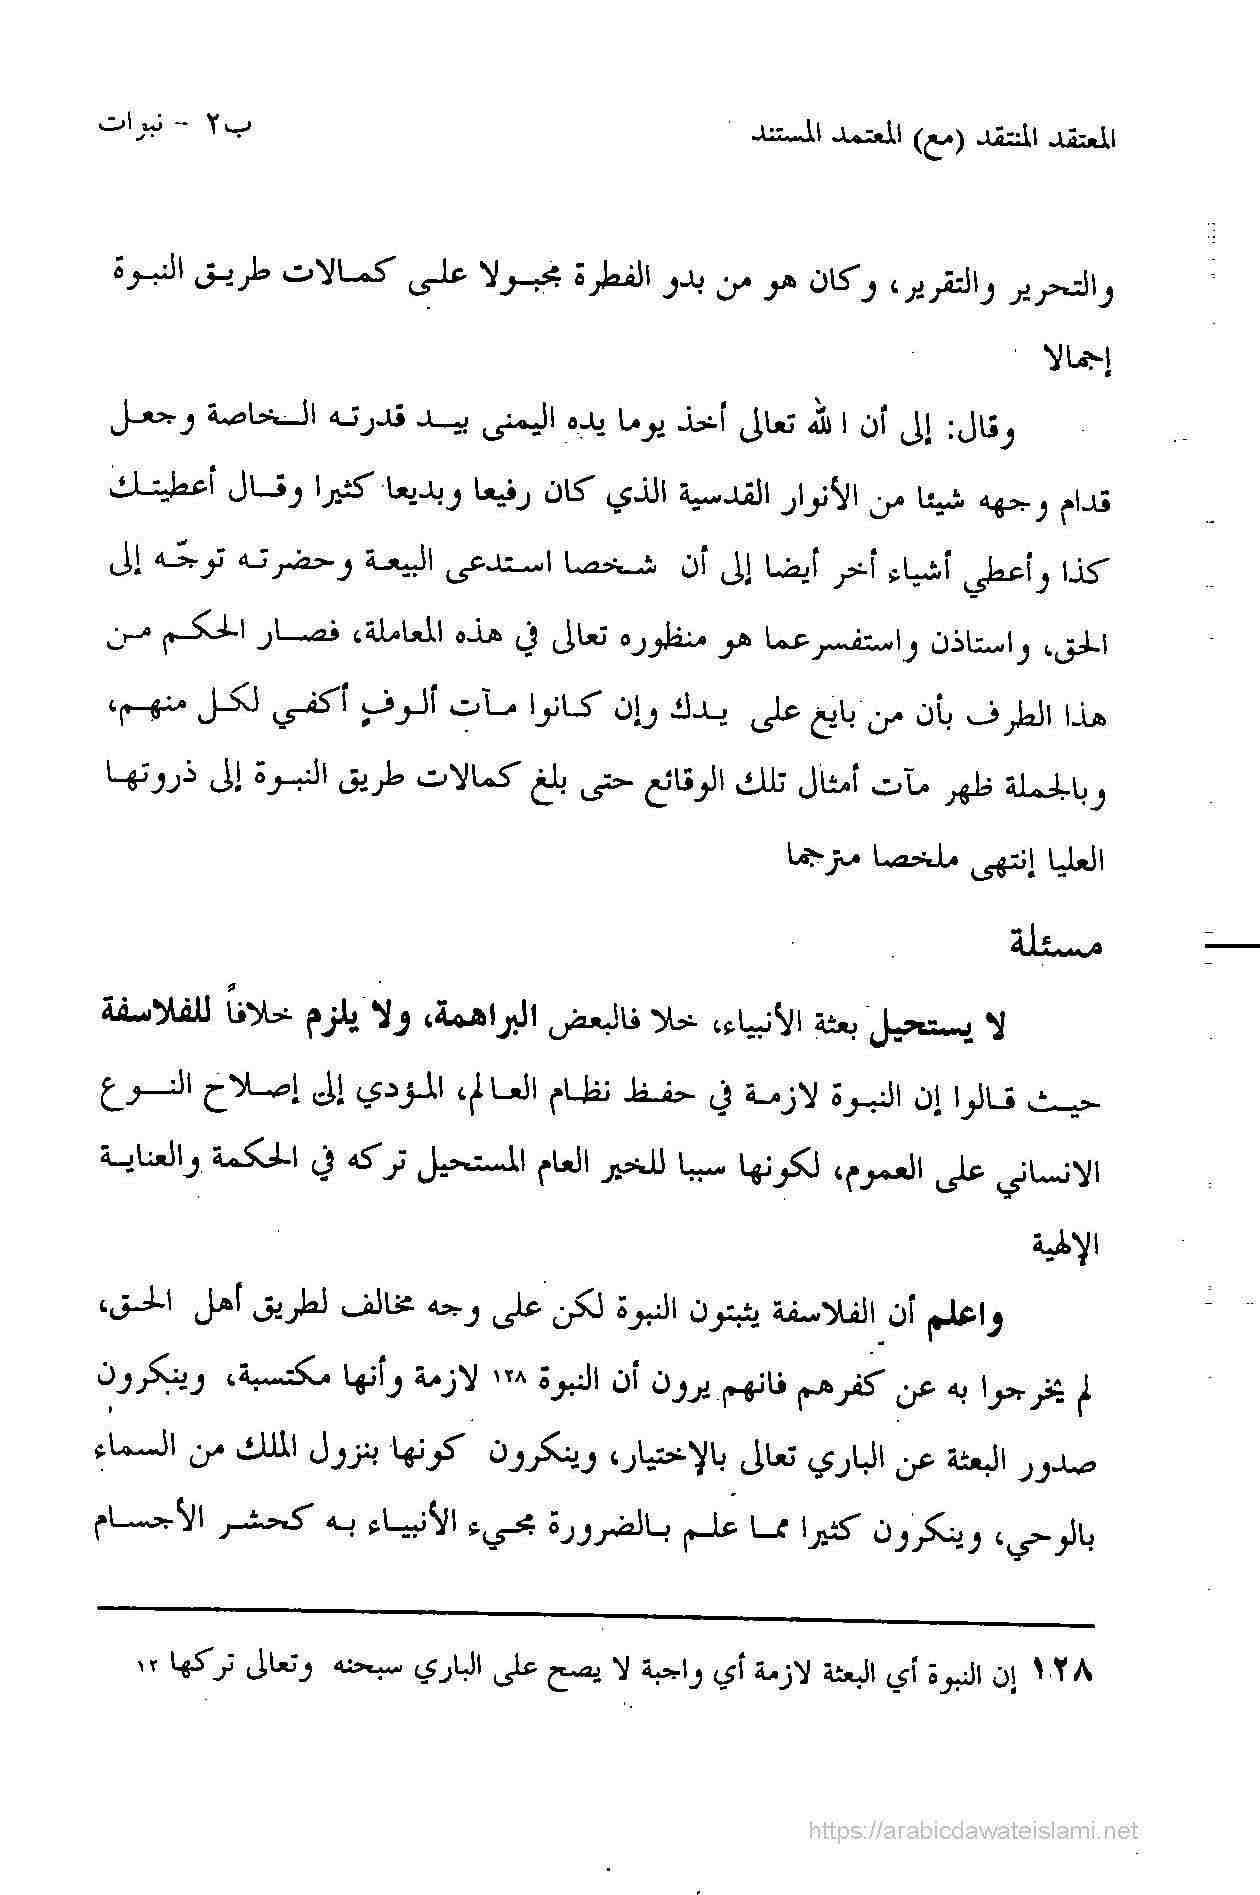 المعتقد المنتقد (مع) المعتمد المستند
ب٢ - نبوات
والتحرير والتقرير، وكان هو من بدو الفطرة مجبولا على كمالات طريق النبوة
إجمالا
وقال: إلى أن الله تعالى أخذ يوما يده اليمنى بيد قدرته الخاصة وجعل
قدام وجهه شيئا من الأنوار القدسية الذي كان رفيعا وبديعا كثيرا وقال أعطيتك
كذا وأعطي أشياء أخر أيضا إلى أن شخصا استدعى البيعة وحضرته توجّه إلى
الحق، واستاذن واستفسر عما هو منظوره تعالى في هذه المعاملة، فصار الحكم من
هذا الطرف بأن من بايع على يدك وإن كانوا مآت ألوفٍ أكفي لكل منهم،
وبالجملة ظهر مآت أمثال تلك الوقائع حتى بلغ كمالات طريق النبوة إلى ذروتها
العليا إنتهى ملخصا مترجما
مسئلة
لا يستحيل بعثة الأنبياء، خلا فالبعض البراهمة، ولا يلزم خلافاً للفلاسفة
حيث قالوا إن النبوة لازمة في حفظ نظام العالم، المؤدي إلى إصلاح النوع
الانساني على العموم، لكونها سببا للخير العام المستحيل تركه في الحكمة والعناية
الإلهية
واعلم أن الفلاسفة يثبتون النبوة لكن على وجه مخالف لطريق أهل الحق،
لم يخرجوا به عن كفرهم فانهم يرون أن النبوة ١٢٨ لازمة وأنها مكتسبة، وينكرون
صدور البعثة عن الباري تعالى بالإختيار، وينكرون كونها بنزول الملك من السماء
بالوحي، وينكرون كثيرا مما علم بالضرورة مجيء الأنبياء به كحشر الأجسام
١٢٨ إن النبوة أي البعثة لازمة أي واجبة لا يصح على الباري سبحنه وتعالى تركها ١٢
https://arabicdawateislami.net